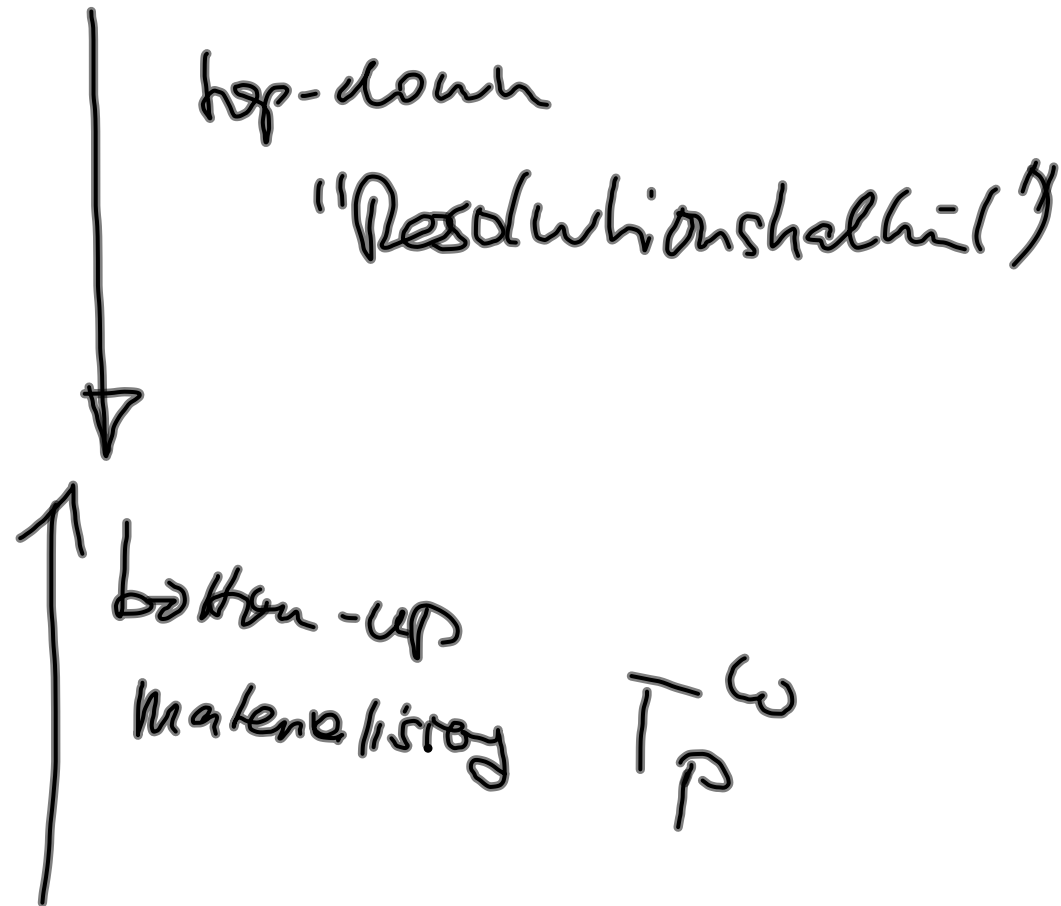 top-down
"Resolutionskalkül"
bottom-up
Materialisierung T_P^ω